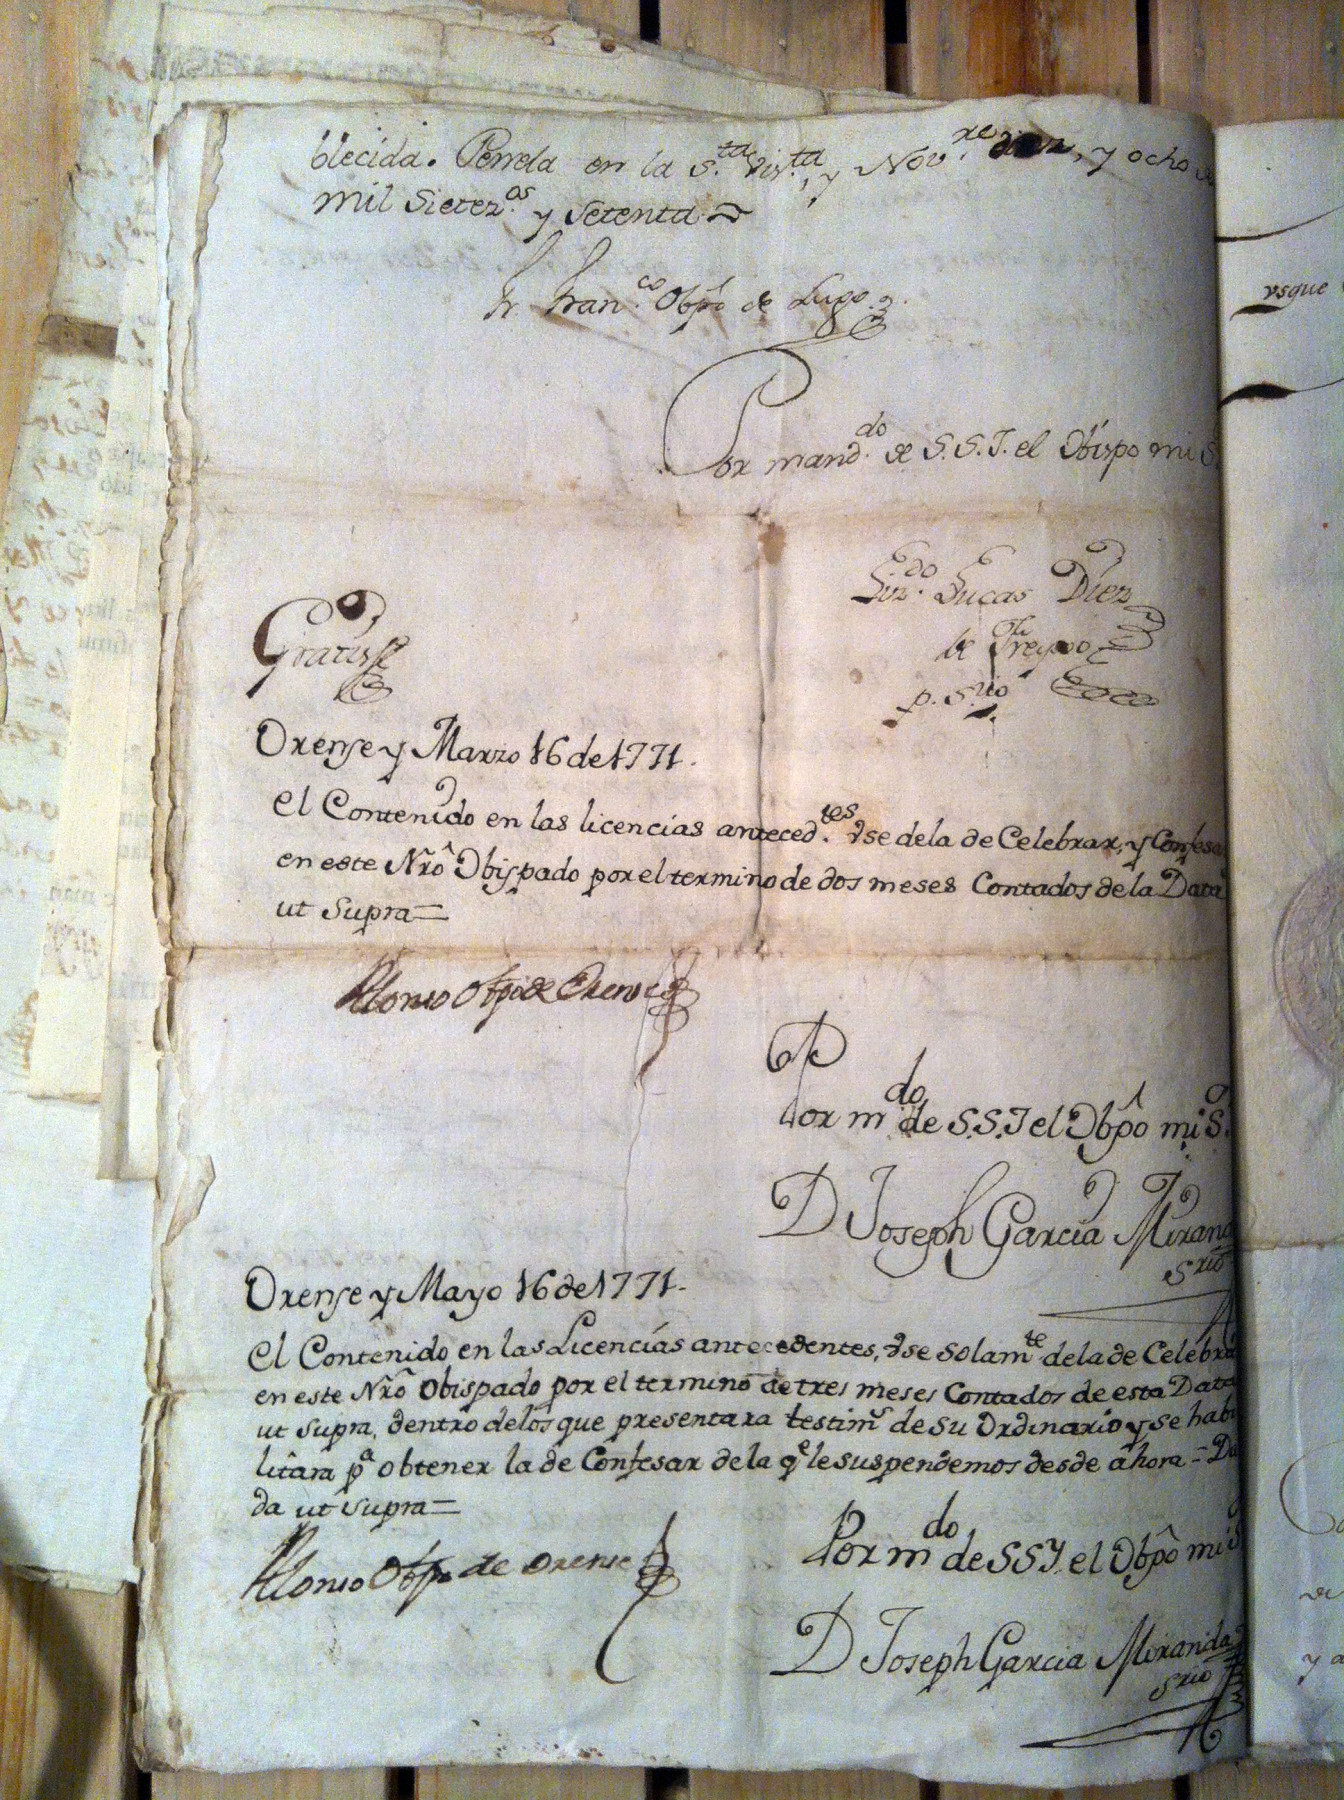 blecida. Penela en la S.ta Vis.ta, y Nov.re diez, y ocho de
mil Setez.os y Setenta
Fr. Fran.co Obpô de Lugo
Por mand.do de S.S.I. el Obispo mi S.
Liz.do Lucas Diez
de
p. S.rio
Gratis
Orense y Marzo 16 de 1771.
El Contenido en las licencias anteced.tes Vse dela de Celebrar, y Confesar
en este Nrô Obispado por el termino de dos meses Contados de la Data
ut Supra=
Alonso Obpô de Orense
Por m.do de S.S.I el Obpô mi S.
D Joseph Garcia Miranda
Srio
Orense y Mayo 16 de 1771.
El Contenido en las Licencias antecedentes, Vse solam.te dela de Celebrar
en este Nrô Obispado por el termino de tres meses Contados de esta Data
ut Supra, dentro delos que presentara testim.o de su Ordinario y se habi
litara p.a obtener la de Confesar de la q.e le suspendemos desde ahora = Da
da ut Supra=
Alonso Obpô de Orense
Por m.do de SSY. el Obpô mi S
D Joseph Garcia Miranda
Srio
vsque
y a